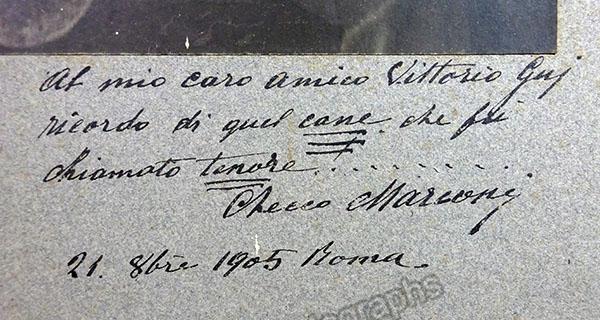 Al mio caro amico Vittorio Guj
ricordo di quel cane che fui
chiamato tenore..........
Checco Marconj
21. 8bre 1905 Roma.